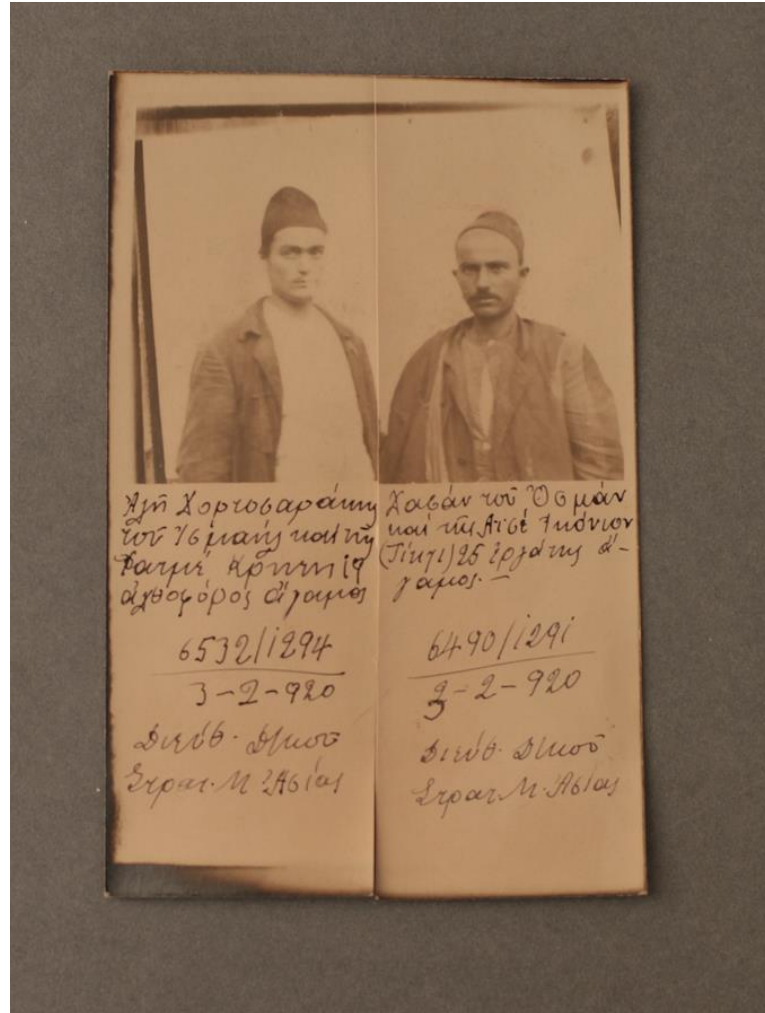 Ἀλῆ Χορτοσαράκης
τοῦ Ἰσμαήλ καί τῆς
Φατμέ Κρήτη 19
ἀχθοφόρος ἄγαμος
6532/1294
3-2-920
Διευθ. Δ/κοῦ
Στρατ. Μ. Ἀσίας
Χασάν τοῦ Ὀσμάν
καί τῆς Αϊσέ Ἰκόνιον
25 ἐργάτης ἄ-
γαμος. —
6490/1291
3-2-920
Διευθ. Δ/κοῦ
Στρατ. Μ. Ἀσίας